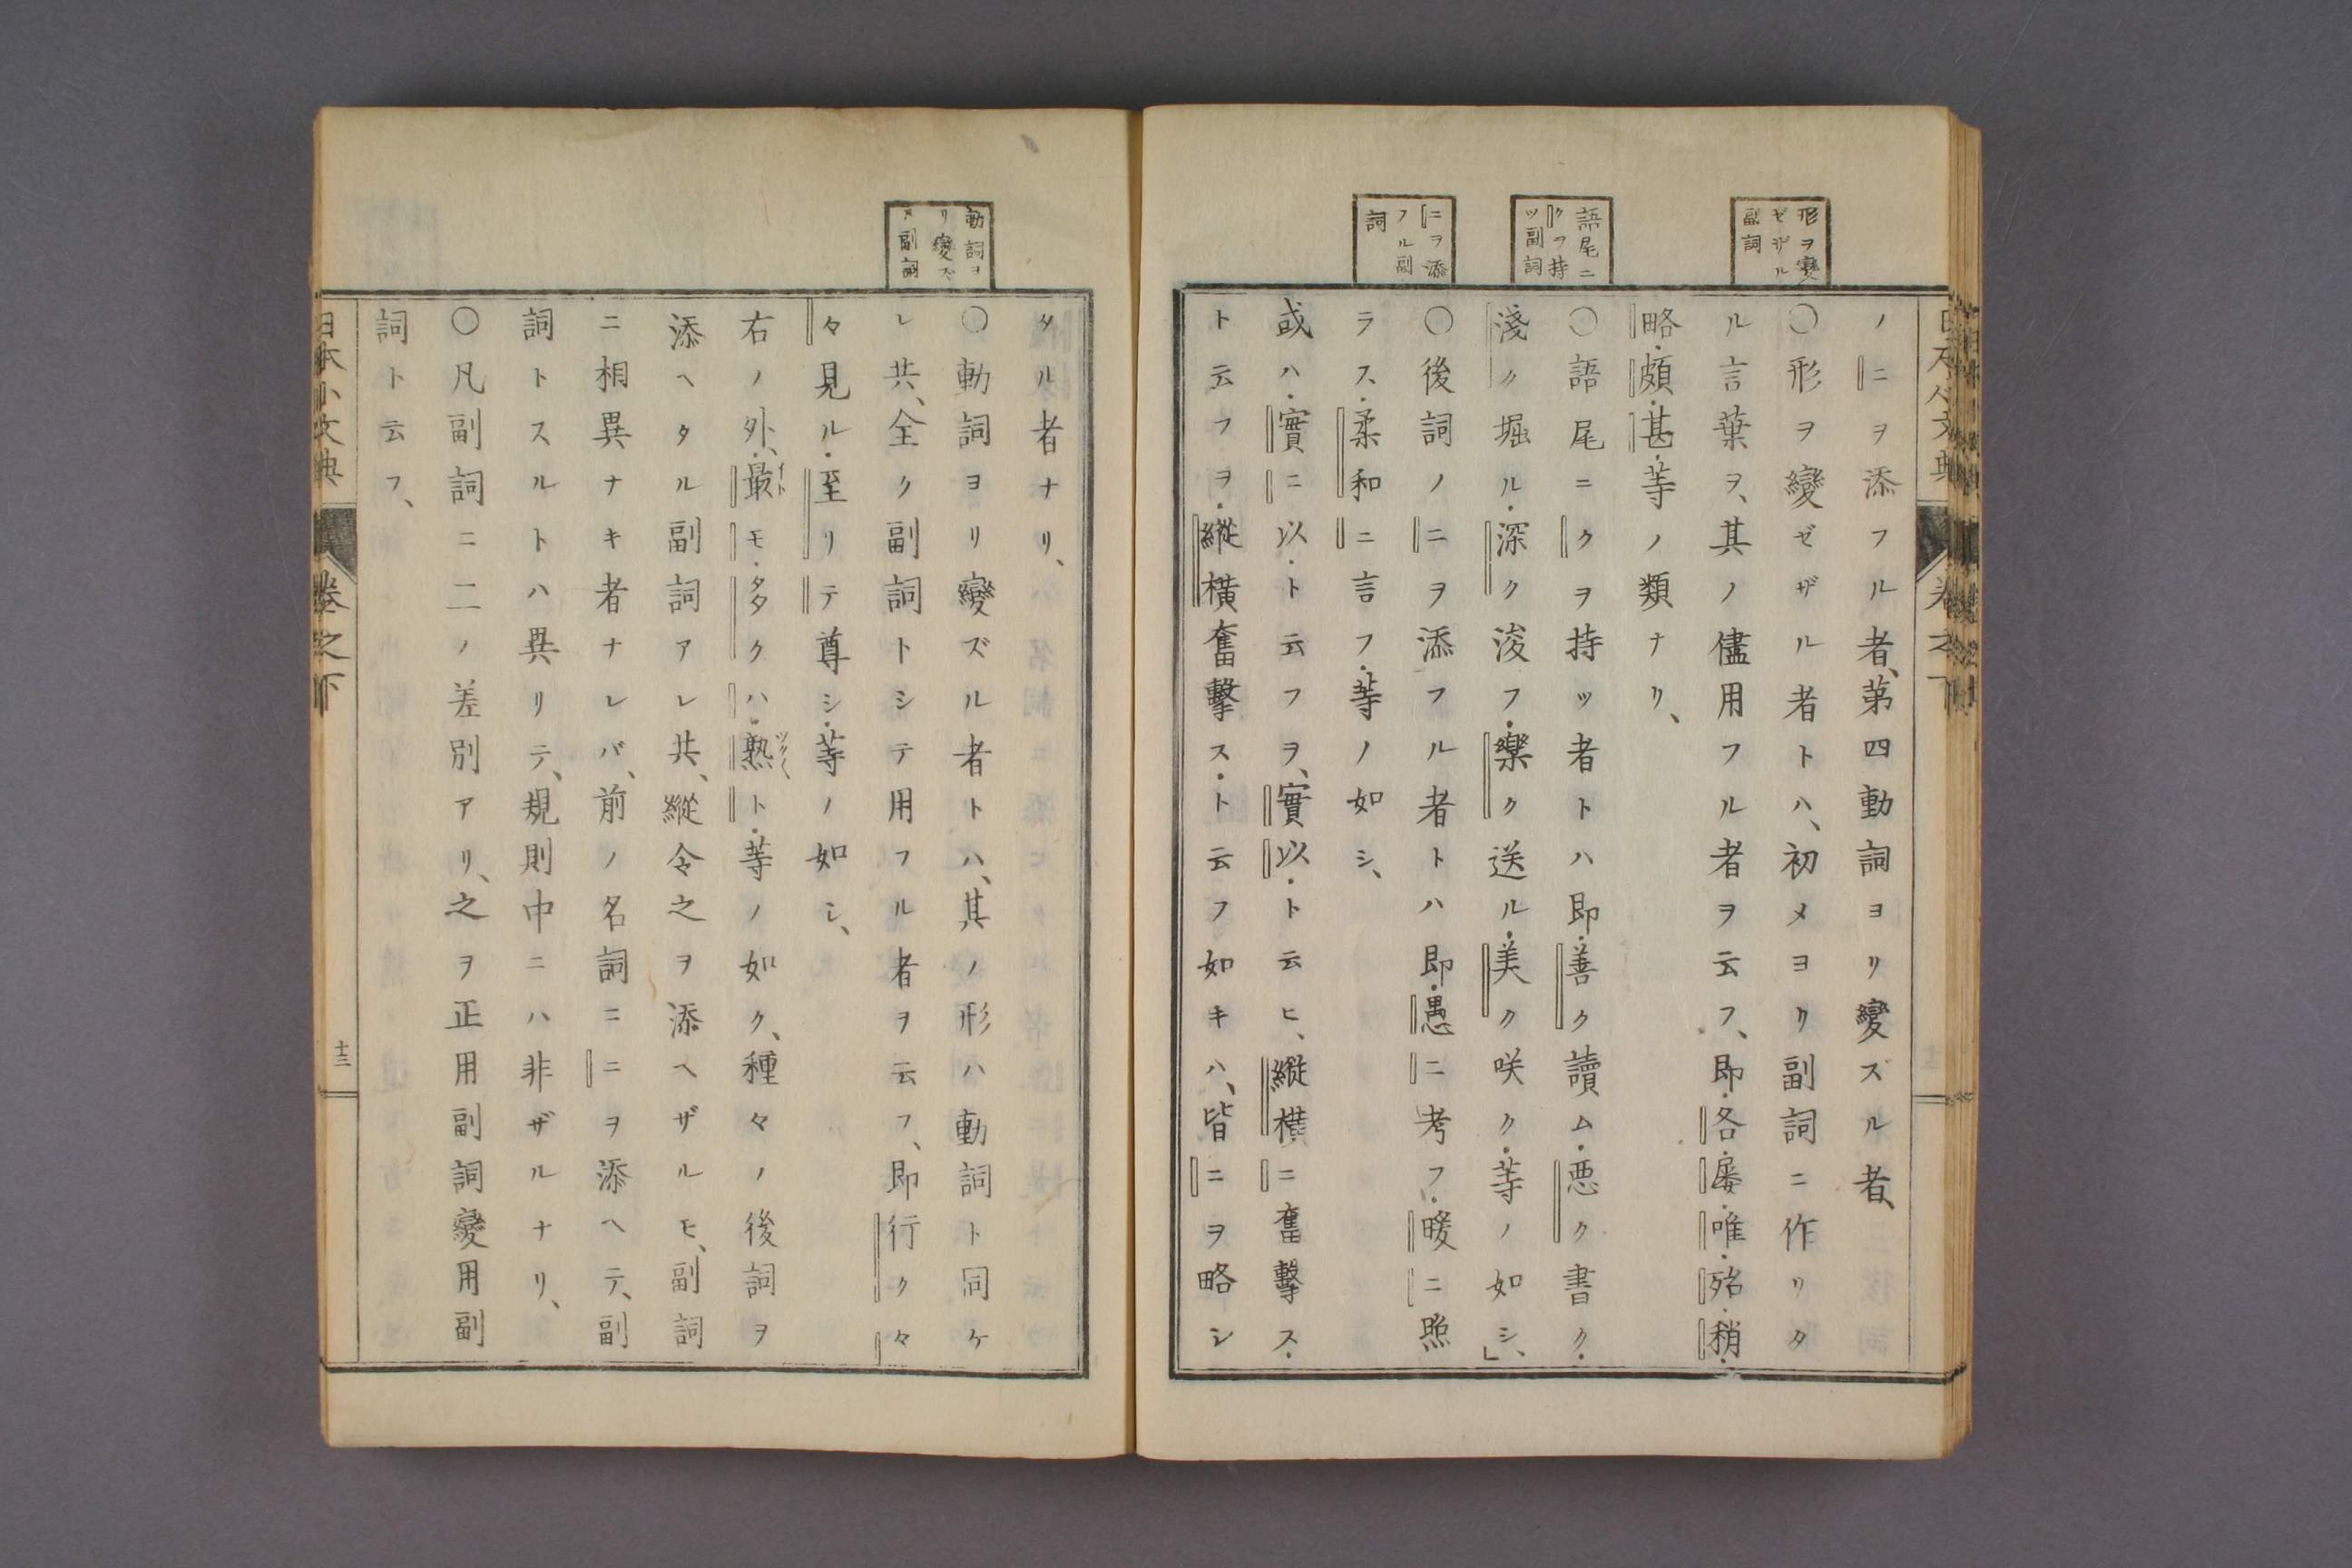 形ヲ變
ゼザル
副詞
語尾ニ
クヲ持
ツ副詞
ニヲ添
フル副
詞
ノニヲ添フル者、第四動詞ヨリ變ズル者、
〇形ヲ變ゼザル者トハ、初メヨリ副詞ニ作リタ
ル言葉ヲ、其ノ儘用フル者ヲ云フ、即・各・屡・唯・殆・稍・
略・頗・甚・等ノ類ナリ、
〇語尾ニクヲ持ツ者トハ即・善ク讀ム・悪ク書ク・
淺ク堀ル・深ク浚フ・樂ク送ル・美ク咲ク・等ノ如シ、」
〇後詞ノニヲ添フル者トハ即・愚ニ考フ・暖ニ照
ラス・柔和ニ言フ・等ノ如シ、
或ハ・實ニ以・ト云フヲ、實以・ト云ヒ、縱横ニ奮擊ス・
ト云フヲ・縱横奮擊ス・ト云フ如キハ、皆ニヲ略シ
動詞ヨ
リ變ズ
ル副詞
タル者ナリ、
〇動詞ヨリ變ズル者トハ、其ノ形ハ動詞ト同ケ
レ共、全ク副詞トシテ用フル者ヲ云フ、即行ク々
々見ル・至リテ尊シ・等ノ如シ、
右ノ外、最イトモ・多クハ・熟ツク〱ト・等ノ如ク、種々ノ後詞ヲ
添ヘタル副詞アレ共、縱令之ヲ添ヘザルモ、副詞
ニ相異ナキ者ナレバ、前ノ名詞ニニヲ添ヘテ、副
詞トスルトハ異リテ、規則中ニハ非ザルナリ、
〇凡副詞ニ二ノ差別アリ、之ヲ正用副詞變用副
詞ト云フ、
日本小文典 卷之下 十三